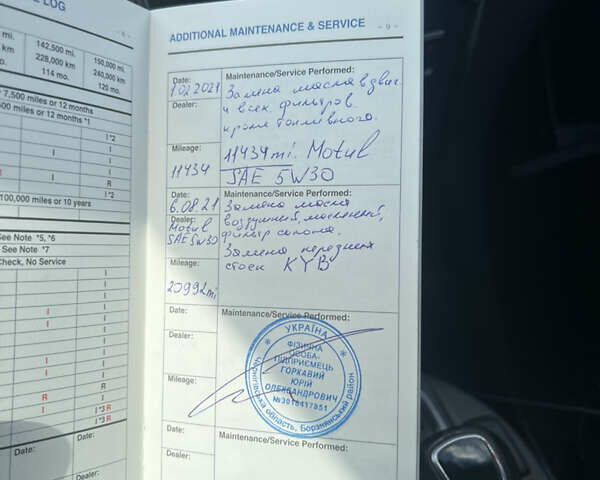 LOG
- 8 -
142,500 mi.
228,000 km
114 mo.
150,000 mi.
240,000 km
120 mo.
7,500 miles or 12 months
miles or 12 months *1
I *2
I
I
I
I R
I *2
100,000 miles or 10 years
See Note *5, *6
See Note *7
Check, No Service
I
I
I I
I
I I
I
R I
I I *3 R
I *3 R
ADDITIONAL MAINTENANCE & SERVICE - 9 -
Date:
7.02.2021
Dealer:
Mileage:
11434
Maintenance/Service Performed:
Замена масла в двиг.
и всех фильтров
кроме топливного.
11434 mi. Motul
SAE 5W30
Date:
6.08.21
Dealer:
Motul
SAE 5W30
Mileage:
20992 mi
Maintenance/Service Performed:
Замена масла
воздушный, масленный,
фильтр салона.
Замена передних
стоек KYB
Date:
Dealer:
Mileage:
Maintenance/Service Performed:
УКРАЇНА
ФІЗИЧНА
ОСОБА-
ПІДПРИЄМЕЦЬ
ГОРКАВИЙ
ЮРІЙ
ОЛЕКСАНДРОВИЧ
№3018417851
Чернігівська область, Борзнянський район
Date:
Dealer:
Maintenance/Service Performed: